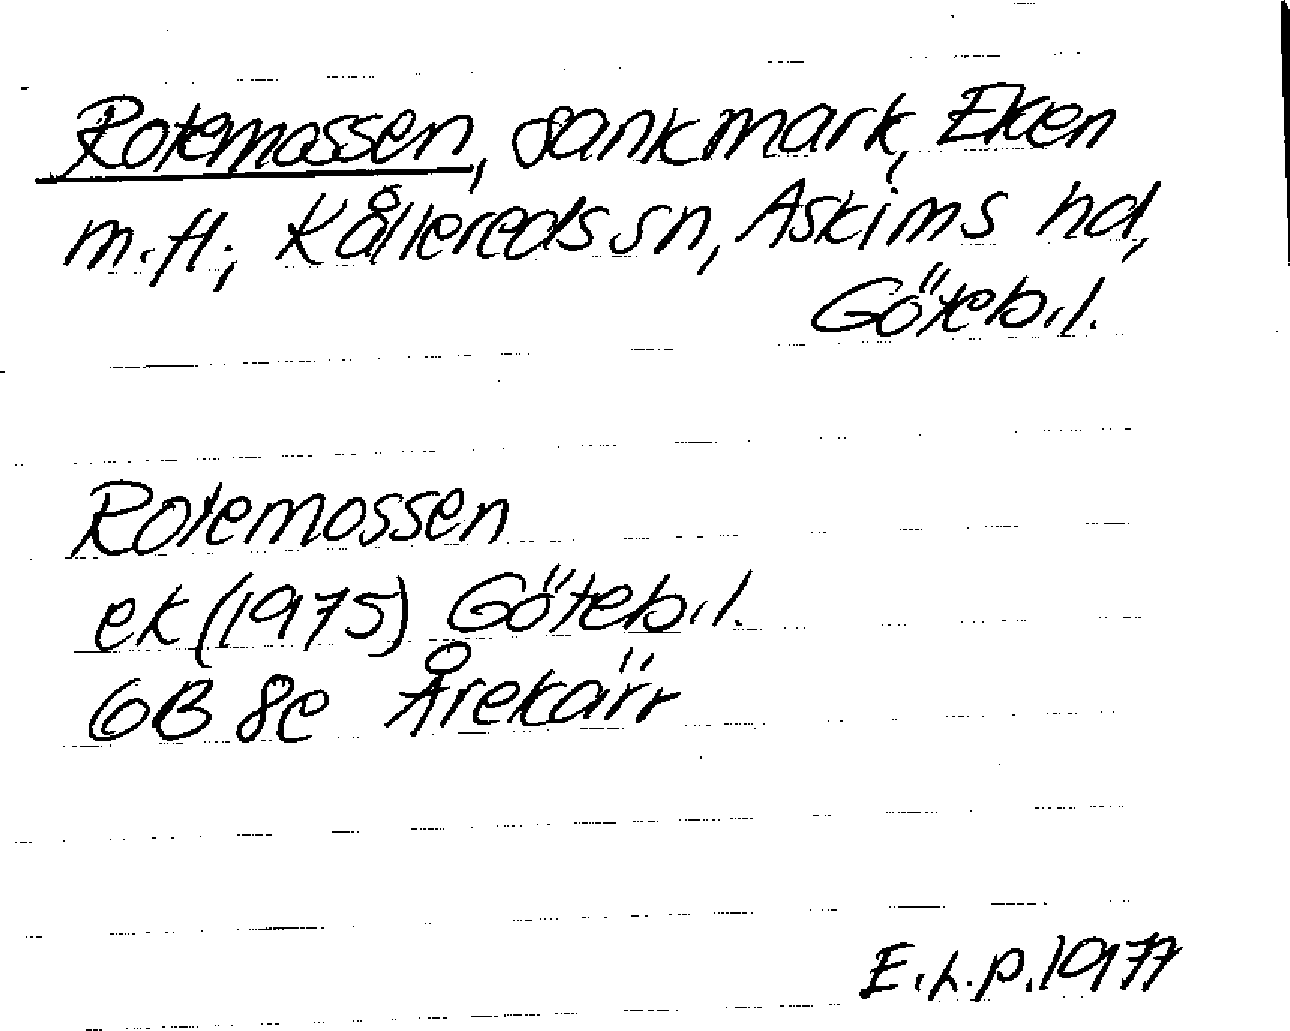 Rotemossen, sankmark, Eken
m.fl., Kållereds sn, Askims hd,
Göteb.l.
Rotemossen
ek (1975) Göteb.l.
6B 8e Årekärr
E.h.p. 1977